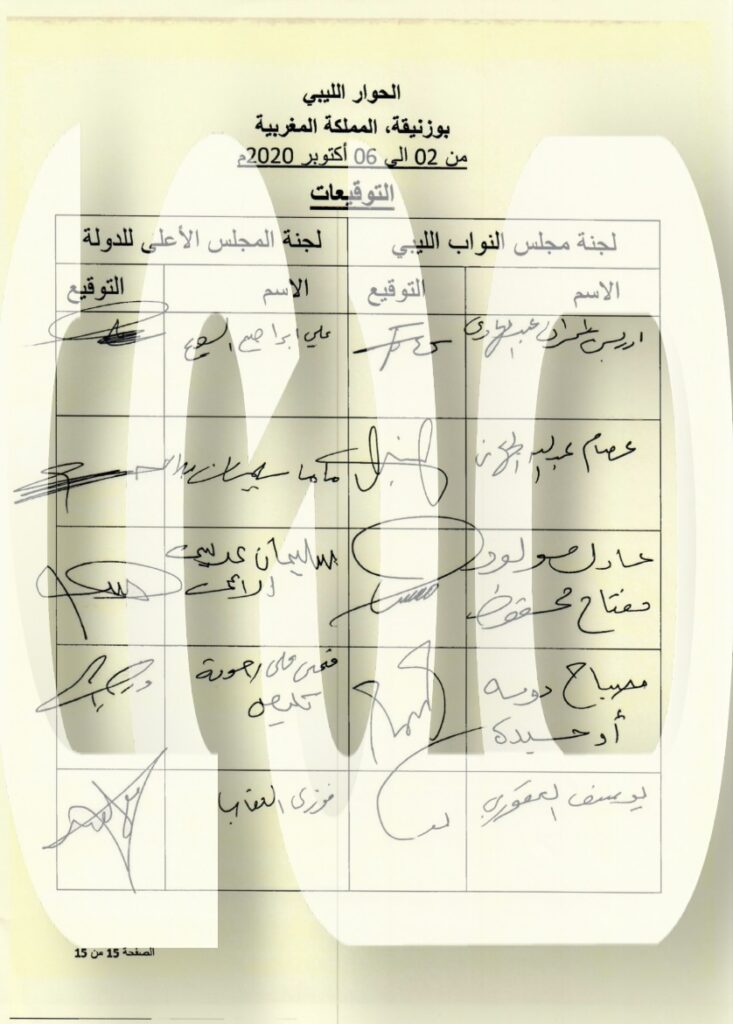 الحوار الليبي
بوزنيقة، المملكة المغربية
من 02 الى 06 أكتوبر 2020م
التوقيعات
لجنة مجلس النواب الليبي
لجنة المجلس الأعلى للدولة
الاسم
التوقيع
الاسم
التوقيع
ادريس عمران عبدالهادي
علي ابراهيم
عصام عبدالله
ماما سليمان بلال
عادل مولود
مفتاح محفوظ
سليمان
مصباح دومه
أوحيدة
فتحي علي
يوسف العقوري
فوزي العقاب
الصفحة 15 من 15